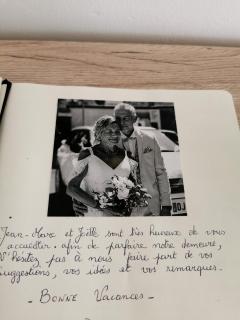 Jean-Marc et Joëlle sont très heureux de vous
accueillir afin de parfaire notre demeure,
N'hésitez pas à nous faire part de vos
suggestions, vos idées et vos remarques.
- BONNE Vacances -